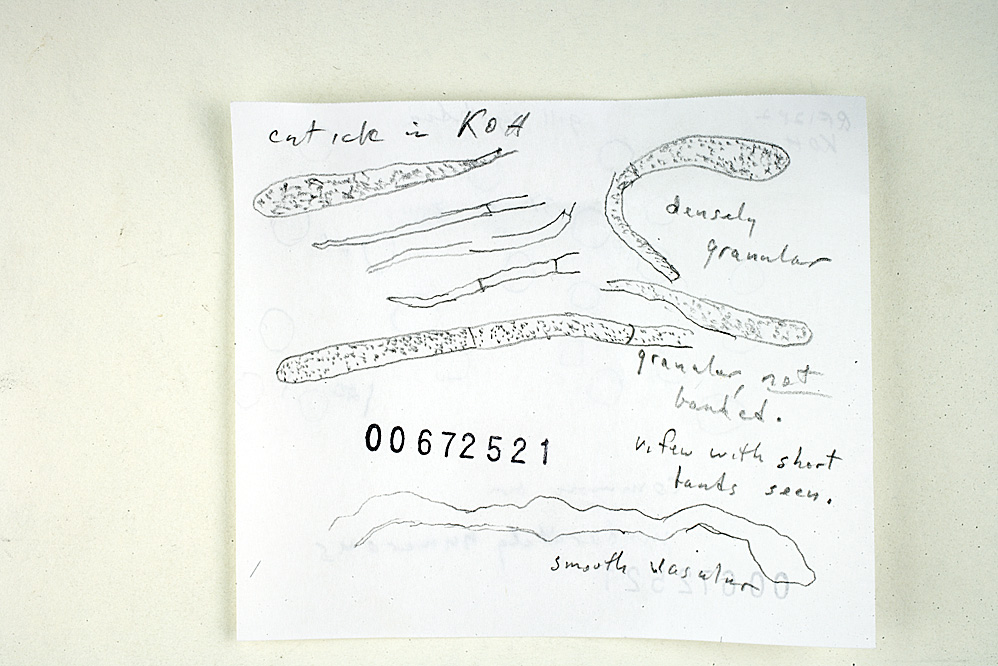 cuticle in KOH
densely
granular
granular, not
banded.
00672521
with short
seen.
smooth vascular